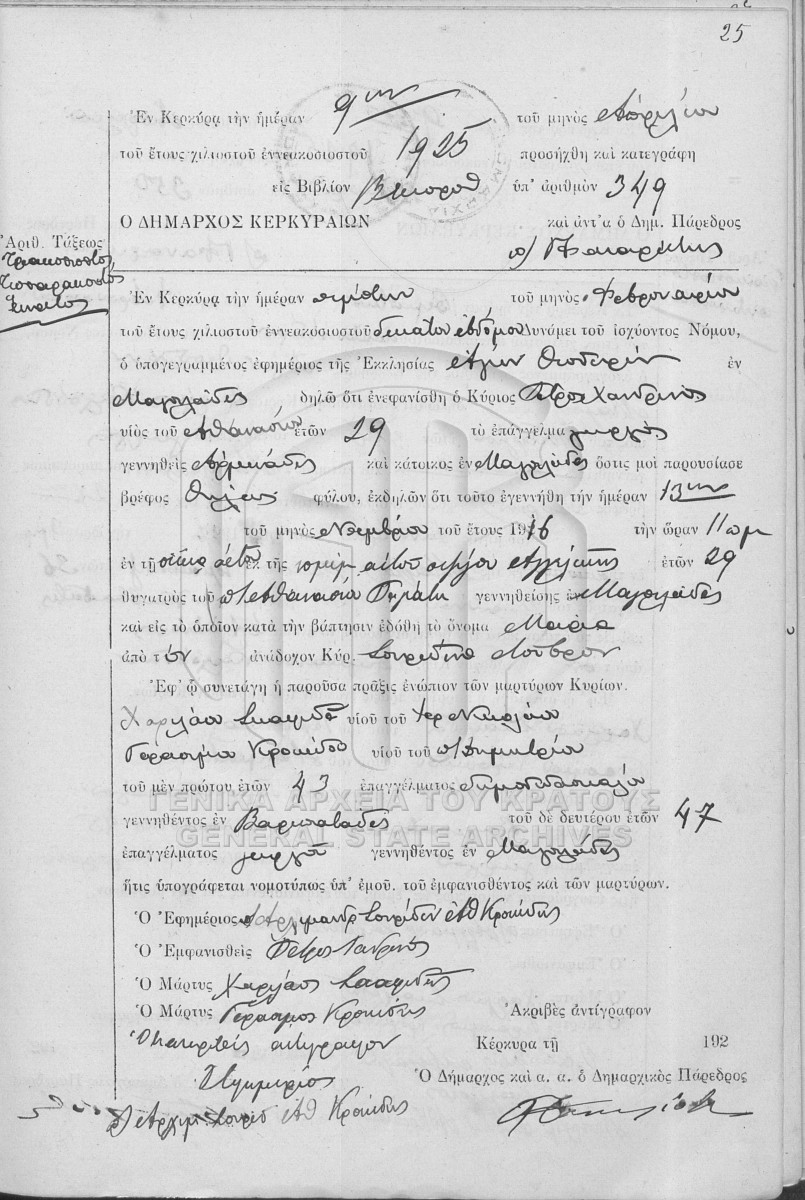 25
Ἐν Κερκύρᾳ τὴν ἡμέραν 9ην τοῦ μηνὸς Ἀπριλίου
τοῦ ἔτους χιλιοστοῦ ἐννεακοσιοστοῦ 1925 προσήχθη καὶ κατεγράφη
εἰς Βιβλίον ὑπ' ἀριθμὸν 349
Ο ΔΗΜΑΡΧΟΣ ΚΕΡΚΥΡΑΙΩΝ καὶ ἀντ'α ὁ Δημ. Πάρεδρος
Ἀριθ. Τάξεως
Τριακοσιοστὸς
Τεσσαρακοστὸς
Ἔννατος
Ἐν Κερκύρᾳ τὴν ἡμέραν πέμπτην τοῦ μηνὸς Φεβρουαρίου
τοῦ ἔτους χιλιοστοῦ ἐννεακοσιοστοῦ δεκάτου ἑβδόμου Δυνάμει τοῦ ἰσχύοντος Νόμου,
ὁ ὑπογεγραμμένος ἐφημέριος τῆς Ἐκκλησίας Ἁγίων Θεοδώρων ἐν
Μαγουλάδες δηλῶ ὅτι ἐνεφανίσθη ὁ Κύριος Πέτρος Χανδρινὸς
υἱὸς τοῦ Ἀθανασίου ἐτῶν 29 τὸ ἐπάγγελμα γεωργὸς
γεννηθεὶς Ἀρμενάδες καὶ κάτοικος ἐν Μαγουλάδες ὅστις μοὶ παρουσίασε
βρέφος θήλεως φύλου, ἐκδηλῶν ὅτι τοῦτο ἐγεννήθη τὴν ἡμέραν 13ην
τοῦ μηνὸς Νοεμβρίου τοῦ ἔτους 1916 τὴν ὥραν 11 πμ
ἐν τῇ οἰκίᾳ αὐτοῦ ἐκ τῆς νομίμου αὐτοῦ συζύγου Ἀγγελικῆς ἐτῶν 29
θυγατρὸς τοῦ π Ἀθανασίου γεννηθείσης ἐν Μαγουλάδες
καὶ εἰς τὸ ὁποῖον κατὰ τὴν βάπτησιν ἐδόθη τὸ ὄνομα Μαρία
ἀπὸ τὸν ἀνάδοχον Κύρ. Σπυρίδωνα Λοῦβρον
Ἐφ' ᾧ συνετάγη ἡ παροῦσα πρᾶξις ἐνώπιον τῶν μαρτύρων Κυρίων.
Χαριλάου υἱοῦ τοῦ ἱερ Νικολάου
Γεράσιμου Κροκίδου υἱοῦ τοῦ π Δημητρίου
τοῦ μὲν πρώτου ἐτῶν 43 ἐπαγγέλματος δημοδιδασκάλου
ΓΕΝΙΚΑ ΑΡΧΕΙΑ ΤΟΥ ΚΡΑΤΟΥΣ
γεννηθέντος ἐν Βαρυπατάδες τοῦ δὲ δευτέρου ἐτῶν 47
GENERAL STATE ARCHIVES
ἐπαγγέλματος γεωργοῦ γεννηθέντος ἐν Μαγουλάδες
ἥτις ὑπογράφεται νομοτύπως ὑπ' ἐμοῦ. τοῦ ἐμφανισθέντος καὶ τῶν μαρτύρων.
Ὁ Ἐφημέριος Ἀρχιμανδρ Σπυρίδων Ἀθ Κροκίδης
Ὁ Ἐμφανισθεὶς Πέτρος Χανδρινός
Ὁ Μάρτυς Χαρίλαος
Ὁ Μάρτυς Γεράσιμος Κροκίδης Ἀκριβὲς ἀντίγραφον
ἀντίγραφον Κέρκυρα τῇ 192
Ὁ Ἐφημέριος Ὁ Δήμαρχος καὶ α. α. ὁ Δημαρχικὸς Πάρεδρος
Ἀρχιμ Σπυρίδ Ἀθ Κροκίδης